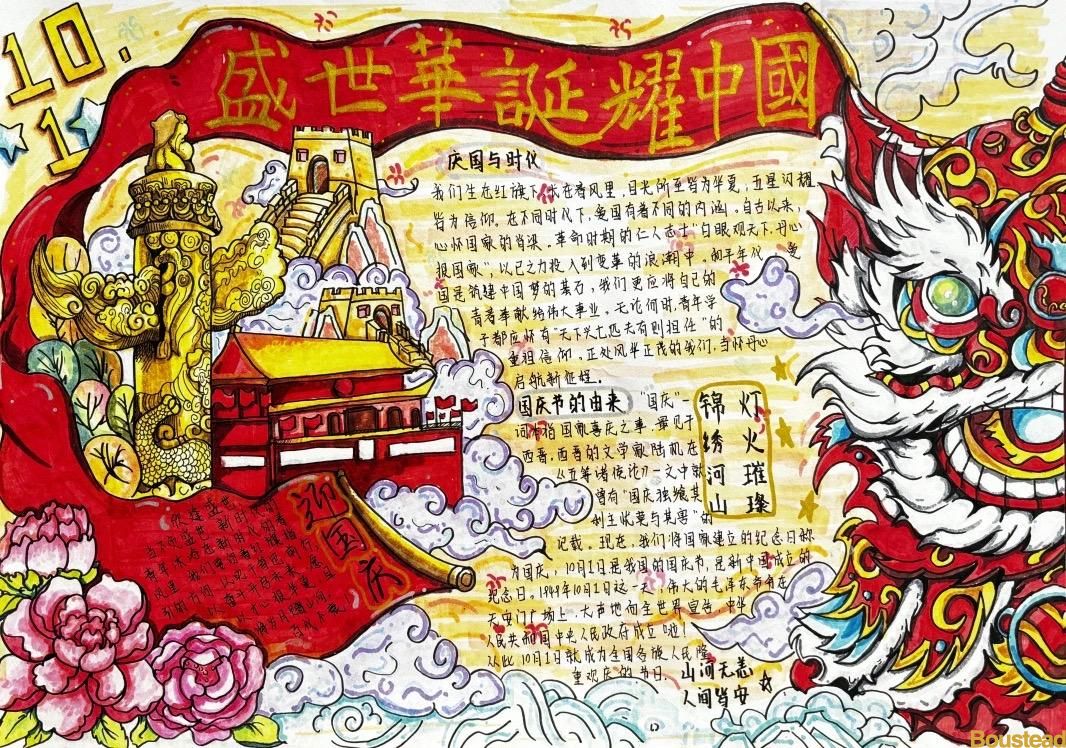 10.
1
盛世華誕耀中國
庆国与时仪
我们生在红旗下,长在春风里,目光所至皆为华夏,五星闪耀
皆为信仰。在不同时代下,爱国有着不同的内涵。自古以来,
心怀国家的脊梁。革命时期的仁人志士"白眼观天下,丹心
报国家",以己之力投入到变革的浪潮中。和平年代,爱
国是筑建中国梦的基石,我们更应将自己的
青春奉献给伟大事业,无论何时,青年学
子都应怀有"天下兴亡匹夫有则担任"的
重担信仰。正处风华正茂的我们,当怀丹心
启航新征程。
国庆节的由来 "国庆"一
词,本指国家喜庆之事,最见于
西晋。西晋的文学家陆机在
《五等诸侯论》一文中就
曾有"国庆独飨其
利主忧莫与其害"的
记载。现在,我们将国家建立的纪念日称
为国庆,10月1日是我国的国庆节,是新中国成立的
纪念日,1949年10月1日这一天,伟大的毛泽东希在
天安门广场上,大声地向全世界宣告,中华
人民共和国中央人民政府成立啦!
从此10月1日就成为全国各族人民隆
重欢庆的节日。
锦绣河山
灯火璀璨
迎国庆
山河无恙
人间皆安
Boustead